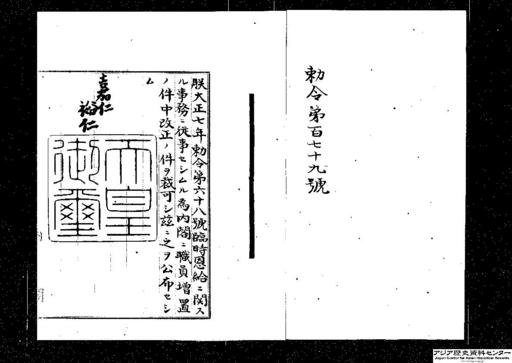 勅令第百七十九號
朕大正七年勅令第六十八號臨時恩給ニ関ス
ル事務ニ従事セシムル為内閣ニ職員増置
ノ件中改正ノ件ヲ裁可シ茲ニ之ヲ公布セシ
ム
嘉仁
裕仁
天皇
御璽
アジア歴史資料センター
Japan Center for Asian Historical Records